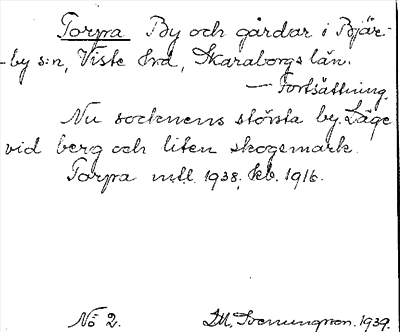 Torpa By och gårdar i Bjär-
-by s:n, Viste hrd, Skaraborgs län.
— Fortsättning.
Nu socknens största by. Läge
vid berg och liten skogsmark.
Torpa mtl. 1938, kb. 1916.
No 2. 1939.